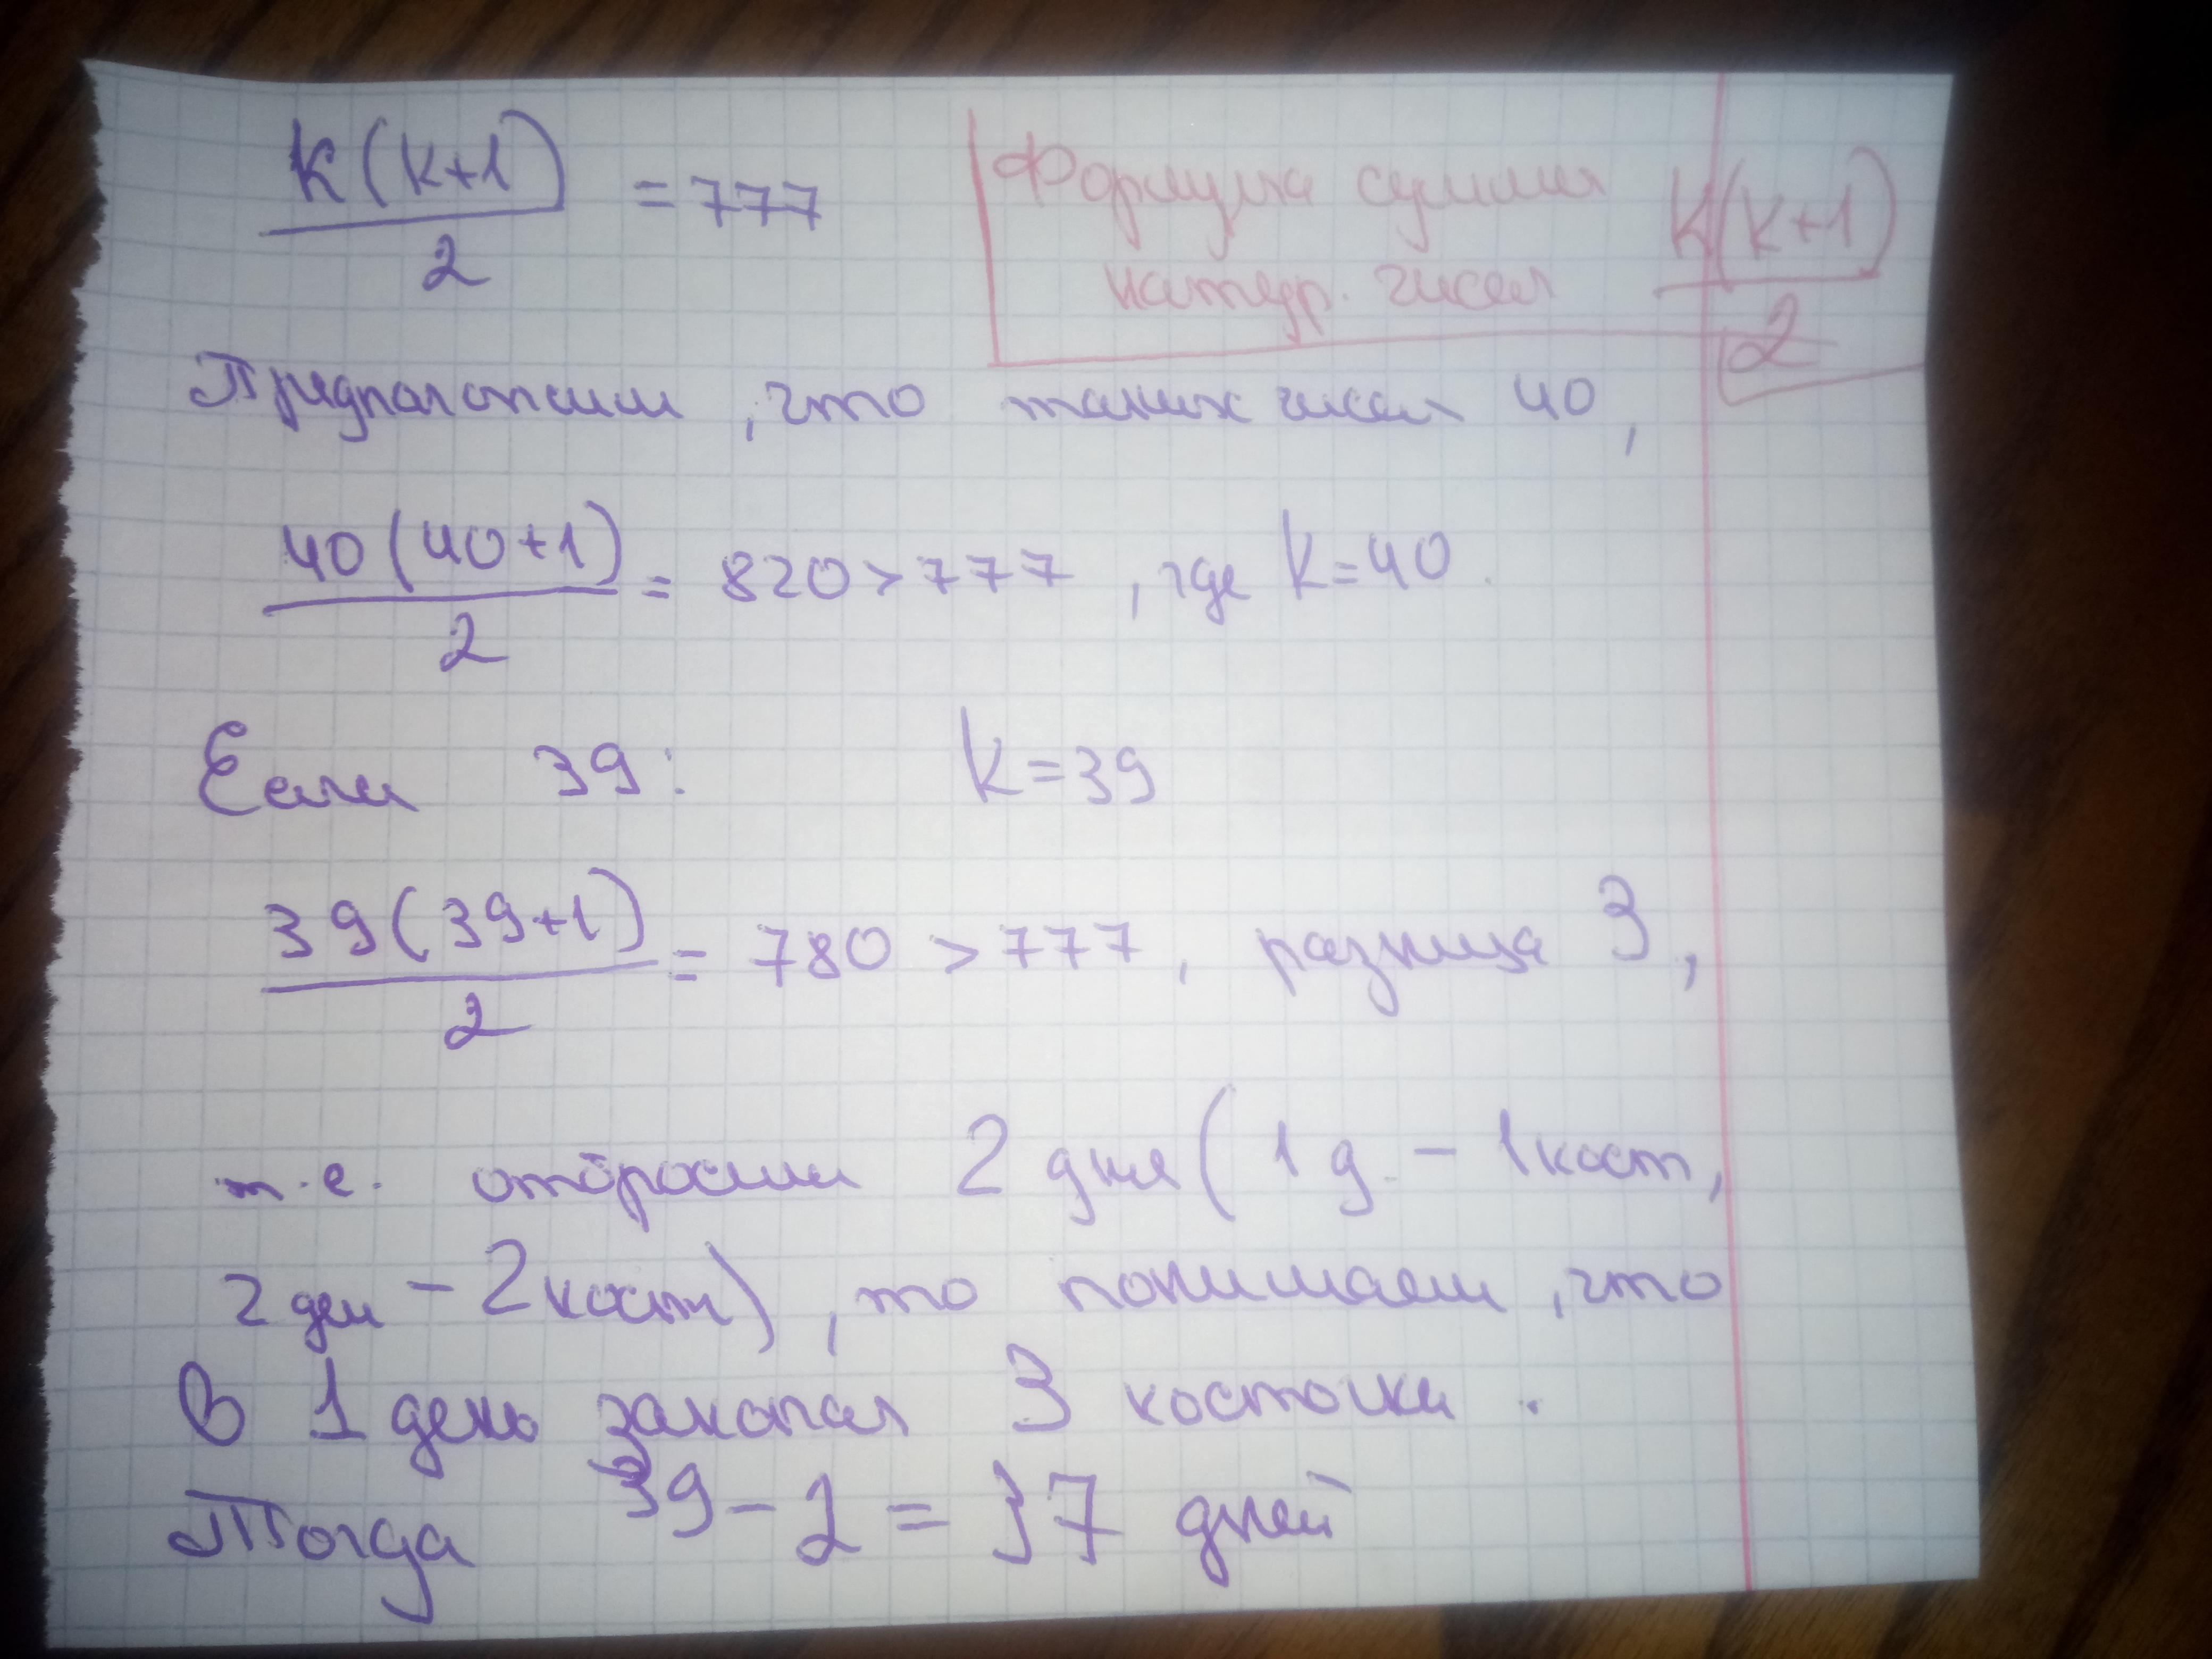 k(k+1)/2 = 777
Формула суммы
натур. чисел k(k+1)/2
Предположим, что таких чисел 40,
40(40+1)/2 = 820 > 777, где k=40.
Если 39: k=39
39(39+1)/2 = 780 > 777, разница 3,
т.е. отбросим 2 дня (1 д. - 1 кост,
2 дня - 2 кост), то понимаем, что
в 1 день закопал 3 косточки.
Тогда 39 - 2 = 37 дней